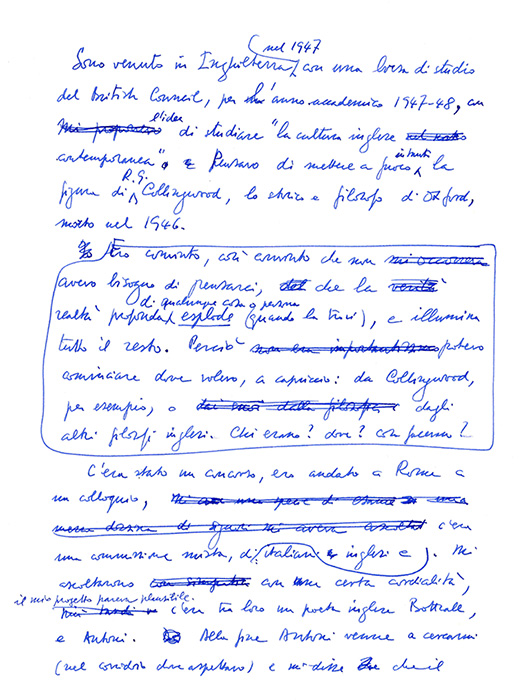 (nel 1947
Sono venuto in Inghilterra, con una borsa di studio
del British Council, per l'anno accademico 1947-48, con
l'idea
mi proponevo di studiare "la cultura inglese nel nostro
contemporanea". E Pensavo di mettere a fuoco intanto la
R.G.
figura di Collingwood, lo storico e filosofo di Oxford,
morto nel 1946.
Ero convinto, così convinto che non mi occorreva
avevo bisogno di pensarci, che la verità
di qualunque cosa o persona
realtà profonda esplode (quando la trovi), e illumina
tutto il resto. Perciò non era importantissimo potevo
cominciare dove volevo, a capriccio: da Collingwood,
per esempio, o dalla filosofia dagli
altri filosofi inglesi. Chi erano? dove? cosa
C'era stato un concorso, ero andato a Roma a
un colloquio, una
mezza dozzina di signori mi aveva ascoltato c'era
una commissione mista, di italiani e inglesi e). Mi
ascoltarono con simpatia con una certa cordialità,
il mio progetto pareva plausibile.
più tardi c'era tra loro un poeta inglese Bottrall,
e Antoni. Alla fine Antoni venne a cercarmi
(nel corridoio dove aspettavo) e mi disse che il